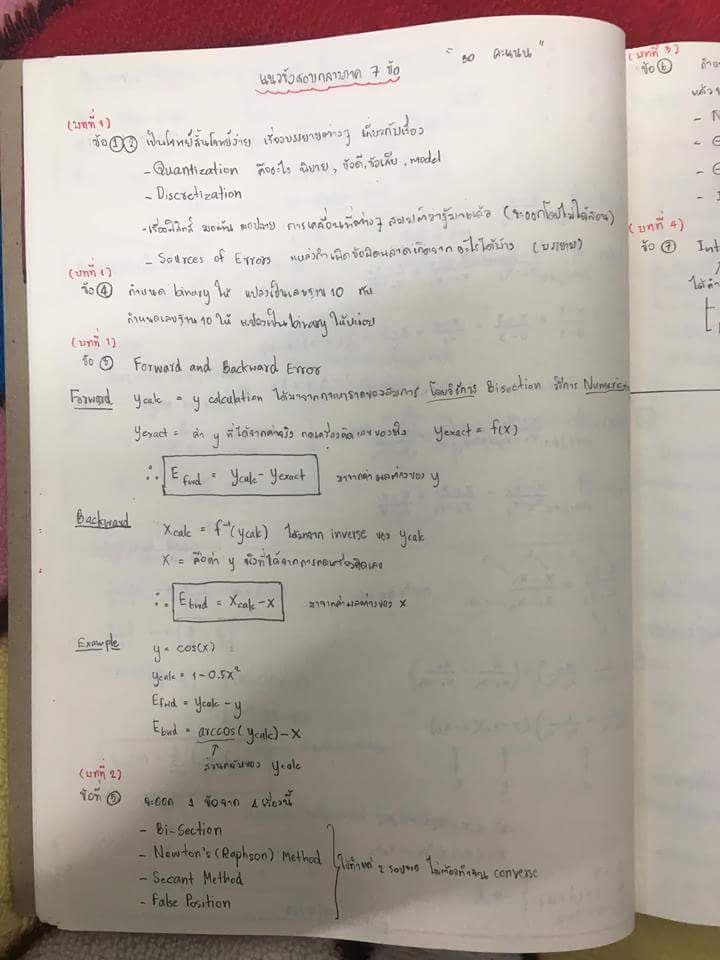 " 30 คะแนน "
แนวข้อสอบกลางภาค 7 ข้อ
(บทที่ 1)
ข้อ ① ② เป็นโจทย์สั้นโจทย์ง่าย เรื่องบรรยายต่างๆ เกี่ยวกับเรื่อง
- Quantization คืออะไร นิยาม, ข้อดี, ข้อเสีย, model
- Discretization
- เรื่องฟิสิกส์ การเคลื่อนที่ต่างๆ สมมติว่ารู้มาแล้ว (จะออกโดยไม่ได้สอน)
- Sources of Errors แหล่งกำเนิดข้อผิดพลาดเกิดจากอะไรได้บ้าง (บรรยาย)
(บทที่ 1)
ข้อ ④ กำหนด binary ให้ แปลงเป็นเลขฐาน 10
กำหนดเลขฐาน 10 ให้ แปลงเป็น binary ให้หน่อย
(บทที่ 1)
ข้อ ③ Forward and Backward Error
Forward ycalc = y calculation ได้มาจากการหารากของสมการ โดยวิธีการ Bisection วิธีการ Numerical
yexact = ค่า y ที่ได้จากค่าจริง กดเครื่องคิดเลข yexact = f(x)
∴ E fwd = ycalc - yexact มาจากค่าผลต่างของ y
Backward xcalc = f⁻¹(ycalc) ได้มาจาก inverse ของ ycalc
x = คือค่า y จริงที่ได้จากการกดเครื่องคิดเลข
∴ E bwd = xcalc - x มาจากค่าผลต่างของ x
Example y = cos(x)
ycalc = 1 - 0.5x²
Efwd = ycalc - y
Ebwd = arccos(ycalc) - x
ส่วนกลับของ ycalc
(บทที่ 2)
ข้อที่ ⑤ จะออก 1 ข้อจาก 4 เรื่องนี้
- Bi-Section
- Newton's (Raphson) Method
- Secant Method
- False Position
ให้ทำแค่ 2 รอบพอ ไม่ต้องทำจน converse
(บทที่ 3)
ข้อ ⑥
(บทที่ 4)
ข้อ ⑦ Int